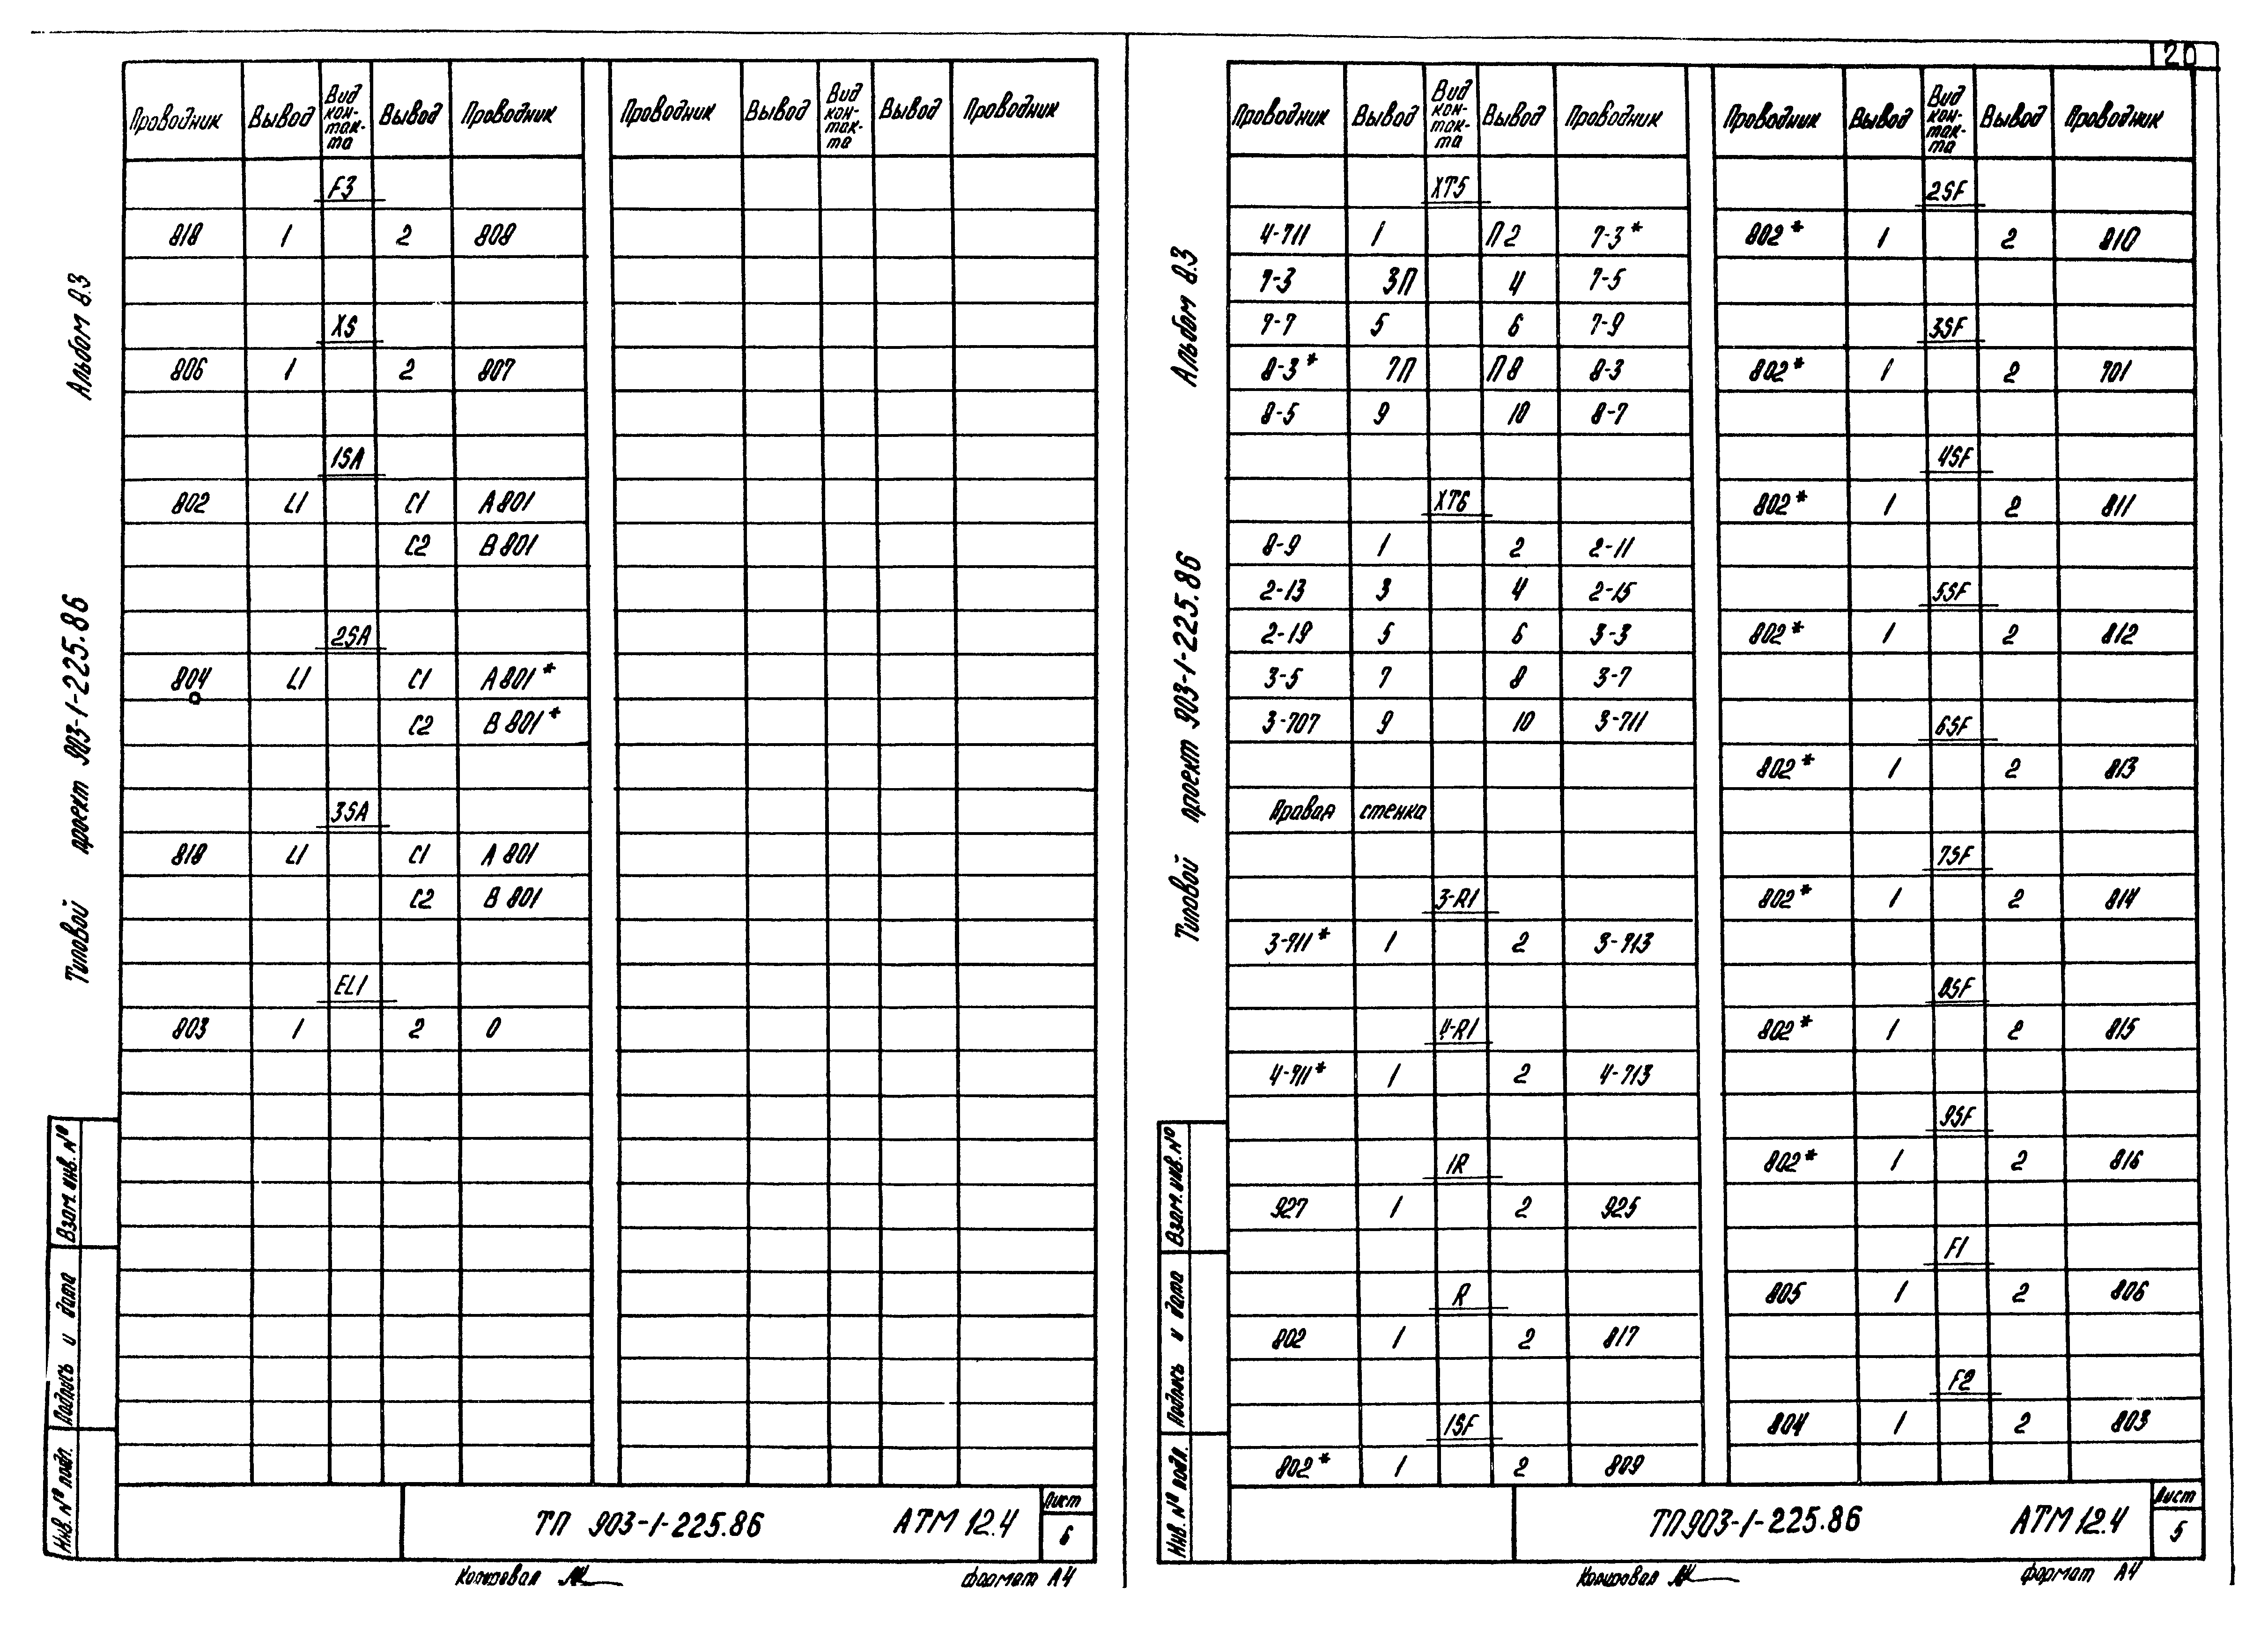 20
Альбом 8.3
Типовой проект 903-1-225.86
Взам. инв. №
Подпись и дата
Инв. № подл.
Проводник Вывод Вид кон-так-та Вывод Проводник Проводник Вывод Вид кон-так-та Вывод Проводник
F3
818 1 2 808
XS
806 1 2 807
1SA
802 L1 C1 A801
C2 B801
2SA
804 L1 C1 A801*
C2 B801*
3SA
818 L1 C1 A801
C2 B801
EL1
803 1 2 0
ТП 903-1-225.86 АТМ 12.4
Лист
6
Копировал
формат А4
Альбом 8.3
Типовой проект 903-1-225.86
Взам. инв. №
Подпись и дата
Инв. № подл.
Проводник Вывод Вид кон-так-та Вывод Проводник
XT5
4-711 1 П2 7-3*
7-3 3П 4 7-5
7-7 5 6 7-9
8-3* 7П П8 8-3
8-5 9 10 8-7
XT6
8-9 1 2 2-11
2-13 3 4 2-15
2-19 5 6 3-3
3-5 7 8 3-7
3-707 9 10 3-711
Правая стенка
3-R1
3-711* 1 2 3-713
4-R1
4-711* 1 2 4-713
1R
927 1 2 925
R
802 1 2 817
1SF
802* 1 2 809
Проводник Вывод Вид кон-так-та Вывод Проводник
2SF
802* 1 2 810
3SF
802* 1 2 701
4SF
802* 1 2 811
5SF
802* 1 2 812
6SF
802* 1 2 813
7SF
802* 1 2 814
8SF
802* 1 2 815
9SF
802* 1 2 816
F1
805 1 2 806
F2
804 1 2 803
ТП903-1-225.86 АТМ 12.4
Лист
5
Копировал
формат А4